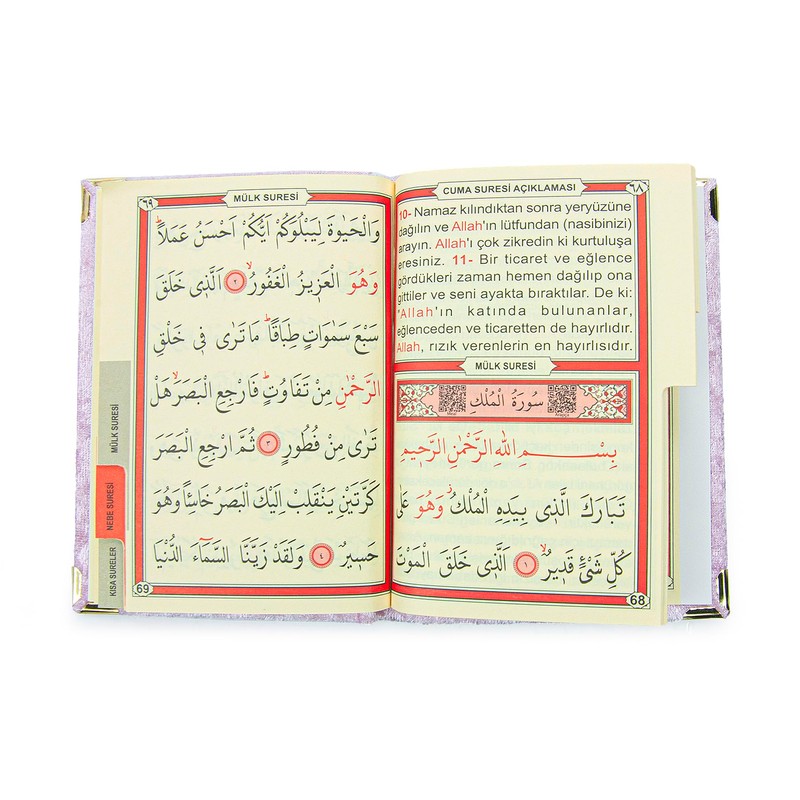 ٦٨
CUMA SURESİ AÇIKLAMASI
10- Namaz kılındıktan sonra yeryüzüne
dağılın ve Allah'ın lütfundan (nasibinizi)
arayın. Allah'ı çok zikredin ki kurtuluşa
eresiniz. 11- Bir ticaret ve eğlence
gördükleri zaman hemen dağılıp ona
gittiler ve seni ayakta bıraktılar. De ki:
"Allah'ın katında bulunanlar,
eğlenceden ve ticaretten de hayırlıdır.
Allah, rızık verenlerin en hayırlısıdır.
MÜLK SURESİ
سُورَةُ الْمُلْكِ
بِسْمِ اللهِ الرَّحْمٰنِ الرَّح۪يمِ
تَبَارَكَ الَّذ۪ي بِيَدِهِ الْمُلْكُۘ وَهُوَ عَلٰى
كُلِّ شَيْءٍ قَد۪يرٌۙ ﴿١﴾ اَلَّذ۪ي خَلَقَ الْمَوْتَ
68
٦٩
MÜLK SURESİ
وَالْحَيٰوةَ لِيَبْلُوَكُمْ اَيُّكُمْ اَحْسَنُ عَمَلاًۜ
وَهُوَ الْعَز۪يزُ الْغَفُورُۙ ﴿٢﴾ اَلَّذ۪ي خَلَقَ
سَبْعَ سَمٰوَاتٍ طِبَاقاًۜ مَا تَرٰى ف۪ي خَلْقِ
الرَّحْمٰنِ مِنْ تَفَاوُتٍۜ فَارْجِعِ الْبَصَرَۙ هَلْ
تَرٰى مِنْ فُطُورٍ ﴿٣﴾ ثُمَّ ارْجِعِ الْبَصَرَ
كَرَّتَيْنِ يَنْقَلِبْ اِلَيْكَ الْبَصَرُ خَاسِئاً وَهُوَ
حَس۪يرٌ ﴿٤﴾ وَلَقَدْ زَيَّنَّا السَّمَٓاءَ الدُّنْيَا
69
MÜLK SURESİ
NEBE SURESİ
KISA SURELER